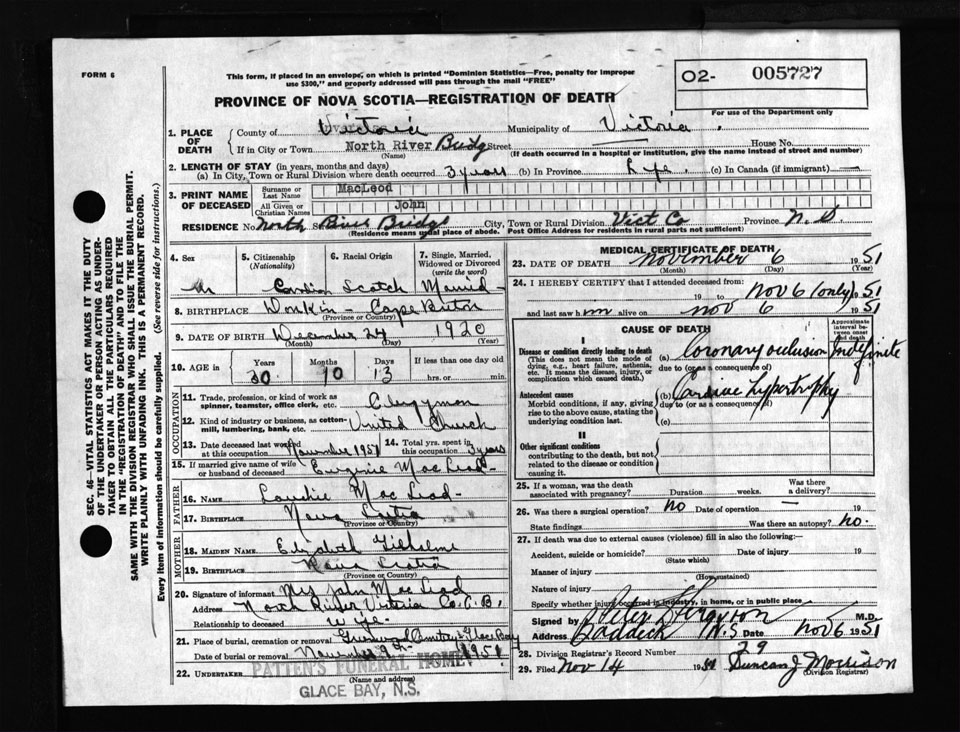 FORM 6
This form, if placed in an envelope, on which is printed "Dominion Statistics—Free, penalty for improper
use $300," and properly addressed will pass through the mail "FREE"
O2- 005727
For use of the Department only
PROVINCE OF NOVA SCOTIA—REGISTRATION OF DEATH
1. PLACE OF DEATH
County of Victoria Municipality of Victoria
If in City or Town North River Bridge Street House No.
(Name) (If death occurred in a hospital or institution, give the name instead of street and number)
2. LENGTH OF STAY (in years, months and days)
(a) In City, Town or Rural Division where death occurred 3 years (b) In Province Life (c) In Canada (if immigrant) —
3. PRINT NAME OF DECEASED
Surname or Last Name MacLeod
All Given or Christian Names John
RESIDENCE No. North St. River Bridge City, Town or Rural Division Vict Co Province N. S.
(Residence means usual place of abode. Post Office Address for residents in rural parts not sufficient)
4. Sex M
5. Citizenship (Nationality) Canadian
6. Racial Origin Scotch
7. Single, Married, Widowed or Divorced (write the word) Married
8. BIRTHPLACE Donkin - Cape Breton
(Province or Country)
9. DATE OF BIRTH December 24 1920
(Month) (Day) (Year)
10. AGE in Years 30 Months 10 Days 13 If less than one day old hrs. or min.
OCCUPATION
11. Trade, profession, or kind of work as spinner, teamster, office clerk, etc. Clergyman
12. Kind of industry or business, as cotton-mill, lumbering, bank, etc. United Church
13. Date deceased last worked at this occupation November 1951
14. Total yrs. spent in this occupation 3 years
15. If married give name of wife or husband of deceased Eugenie MacLeod
FATHER
16. Name MacLeod
17. BIRTHPLACE Nova Scotia
(Province or Country)
MOTHER
18. MAIDEN NAME Elizabeth
19. BIRTHPLACE Nova Scotia
(Province or Country)
20. Signature of informant Mrs John MacLeod
Address North River Victoria Co. C. B.
Relationship to deceased Wife
21. Place of burial, cremation or removal Greenwood Cemetery Glace Bay
Date of burial or removal November 9th 1951
22. UNDERTAKER PATTEN'S FUNERAL HOME
(Name and address)
GLACE BAY, N.S.
MEDICAL CERTIFICATE OF DEATH
23. DATE OF DEATH November 6 1951
(Month) (Day) (Year)
24. I HEREBY CERTIFY that I attended deceased from:
19 to Nov 6 (only) 1951
and last saw him alive on Nov 6 1951
CAUSE OF DEATH
Approximate interval between onset and death
I
Disease or condition directly leading to death (a) Coronary occlusion Indefinite
(This does not mean the mode of dying, e.g., heart failure, asthenia, etc. It means the disease, injury, or complication which caused death.)
due to (or as a consequence of)
Antecedent causes (b) Cardiac hypertrophy
Morbid conditions, if any, giving rise to the above cause, stating the underlying condition last.
due to (or as a consequence of)
(c)
II
Other significant conditions
contributing to the death, but not related to the disease or condition causing it.
25. If a woman, was the death associated with pregnancy? Duration weeks. Was there a delivery?
26. Was there a surgical operation? no Date of operation — 19
State findings Was there an autopsy? no.
27. If death was due to external causes (violence) fill in also the following:—
Accident, suicide or homicide? Date of injury 19
(State which)
Manner of injury
(How sustained)
Nature of injury
Specify whether injury occurred in industry, in home, or in public place
Signed by Peter Ferguson M.D.
Address Baddeck N.S Date Nov 6 1951
28. Division Registrar's Record Number 29
29. Filed Nov 14 1951 Duncan J Morrison
(Division Registrar)
SEC. 46—VITAL STATISTICS ACT MAKES IT THE DUTY
OF THE UNDERTAKER OR PERSON ACTING AS UNDERTAKER
TO OBTAIN ALL THE PARTICULARS REQUIRED
IN THE "REGISTRATION OF DEATH" AND TO FILE THE
SAME WITH THE DIVISION REGISTRAR WHO SHALL ISSUE THE BURIAL PERMIT.
WRITE PLAINLY WITH UNFADING INK. THIS IS A PERMANENT RECORD.
Every item of information should be carefully supplied. (See reverse side for instructions.)